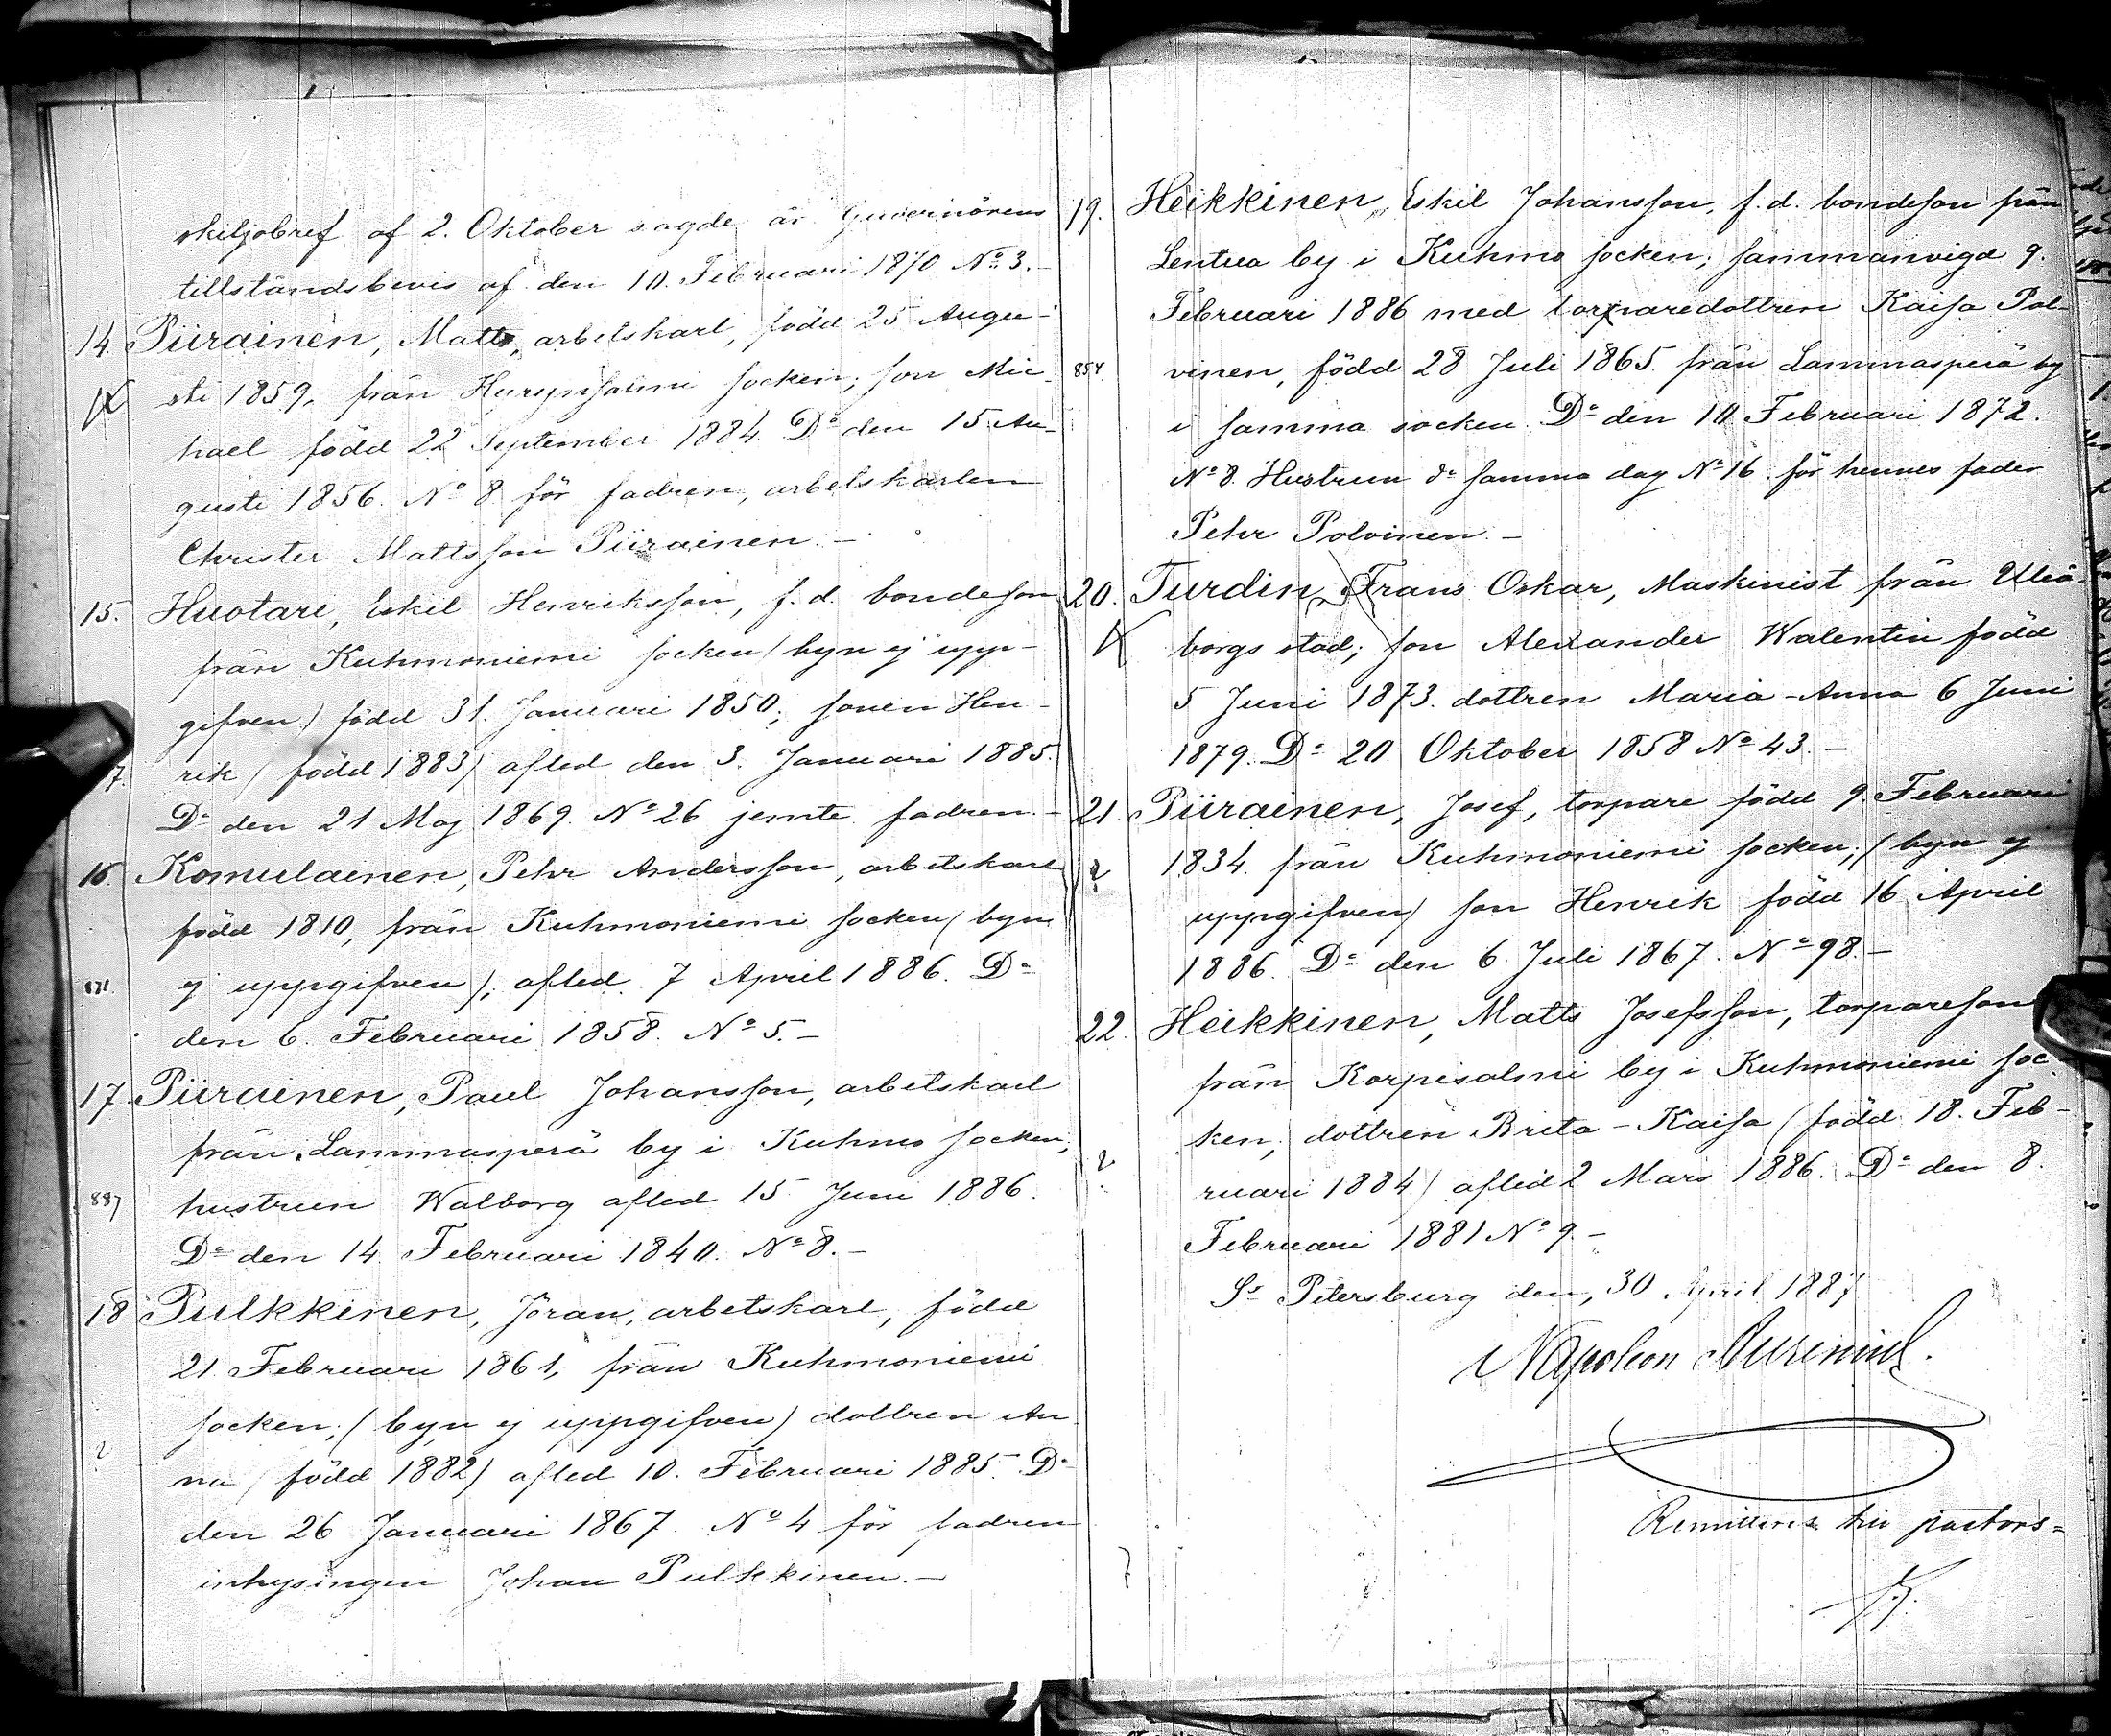 skiljobref af 2. Oktober sagde år Guvernörens
tillståndsbevis af den 10. Februari 1870 No 3.-
14. Piirainen, Matts, arbetskarl, född 25 Augu-
sti 1859, från Hyrynsalmi socken; son Mic-
hael född 22 September 1884. Do den 15. Au-
gusti 1856. No 8 för fadren, arbetskarlen
Christer Mattsson Piirainen. -
15. Huotari, Eskil Henriksson, f.d. bondeson
från Kuhmoniemi socken (byn ej upp-
gifven) född 31. Januari 1850; sonen Hen-
7. rik (född 1883) afled den 3. Januari 1885.
Do den 21 Maj 1869. No 26 jemte fadren. -
16. Komulainen, Pehr Andersson, arbetskarl
född 1810, från Kuhmoniemi socken (byn
871. ej uppgifven); afled 7 April 1886. Do
den 6. Februari 1858. No 5. -
17. Piirainen, Paul Johansson, arbetskarl
från Lammasperä by i Kuhmo socken;
887 hustrun Walborg afled 15 Juni 1886.
Do den 14. Februari 1840. No 8. -
18 Pulkkinen, Jöran, arbetskarl, född
21 Februari 1861, från Kuhmoniemi
socken; (byn ej uppgifven) dottren An
? na (född 1882) afled 10. Februari 1885 Do
den 26 Januari 1867 No 4 för fadren
inhysingen Johan Pulkkinen. -
19. Heikkinen, Eskil Johansson, f.d. bondeson från
Lentua by i Kuhmo socken; sammanvigd 9.
Februari 1886 med torparedottren Kaisa Pol-
854. vinen, född 28 Juli 1865. från Lammasperä by
i samma socken. Do den 10 Februari 1872.
No 8. Hustrun do samma dag No 16. för hennes fader
Pehr Polvinen. -
20. Turdin, Frans Oskar, Maskinist från Uleå-
borgs stad; son Alexander Walentin född
5 Juni 1873. dottren Maria-Anna 6 Juni
1879. Do 20. Oktober 1858 No 43. -
21. Piirainen, Josef, torpare född 9. Februari
? 1834. från Kuhmoniemi socken; (byn ej
uppgifven) son Henrik född 16 April
1886. Do den 6. Juli 1867. No 98. -
22. Heikkinen, Matts Josefsson, torpareson
från Korpisalmi by i Kuhmoniemi soc-
ken; dottren Brita-Kaisa (född 18. Feb-
? ruari 1884) afled 2 Mars 1886. Do den 8.
Februari 1881 No 9. -
St Petersburg den, 30 April 1887
Napoleon
Remitteras till pastors=